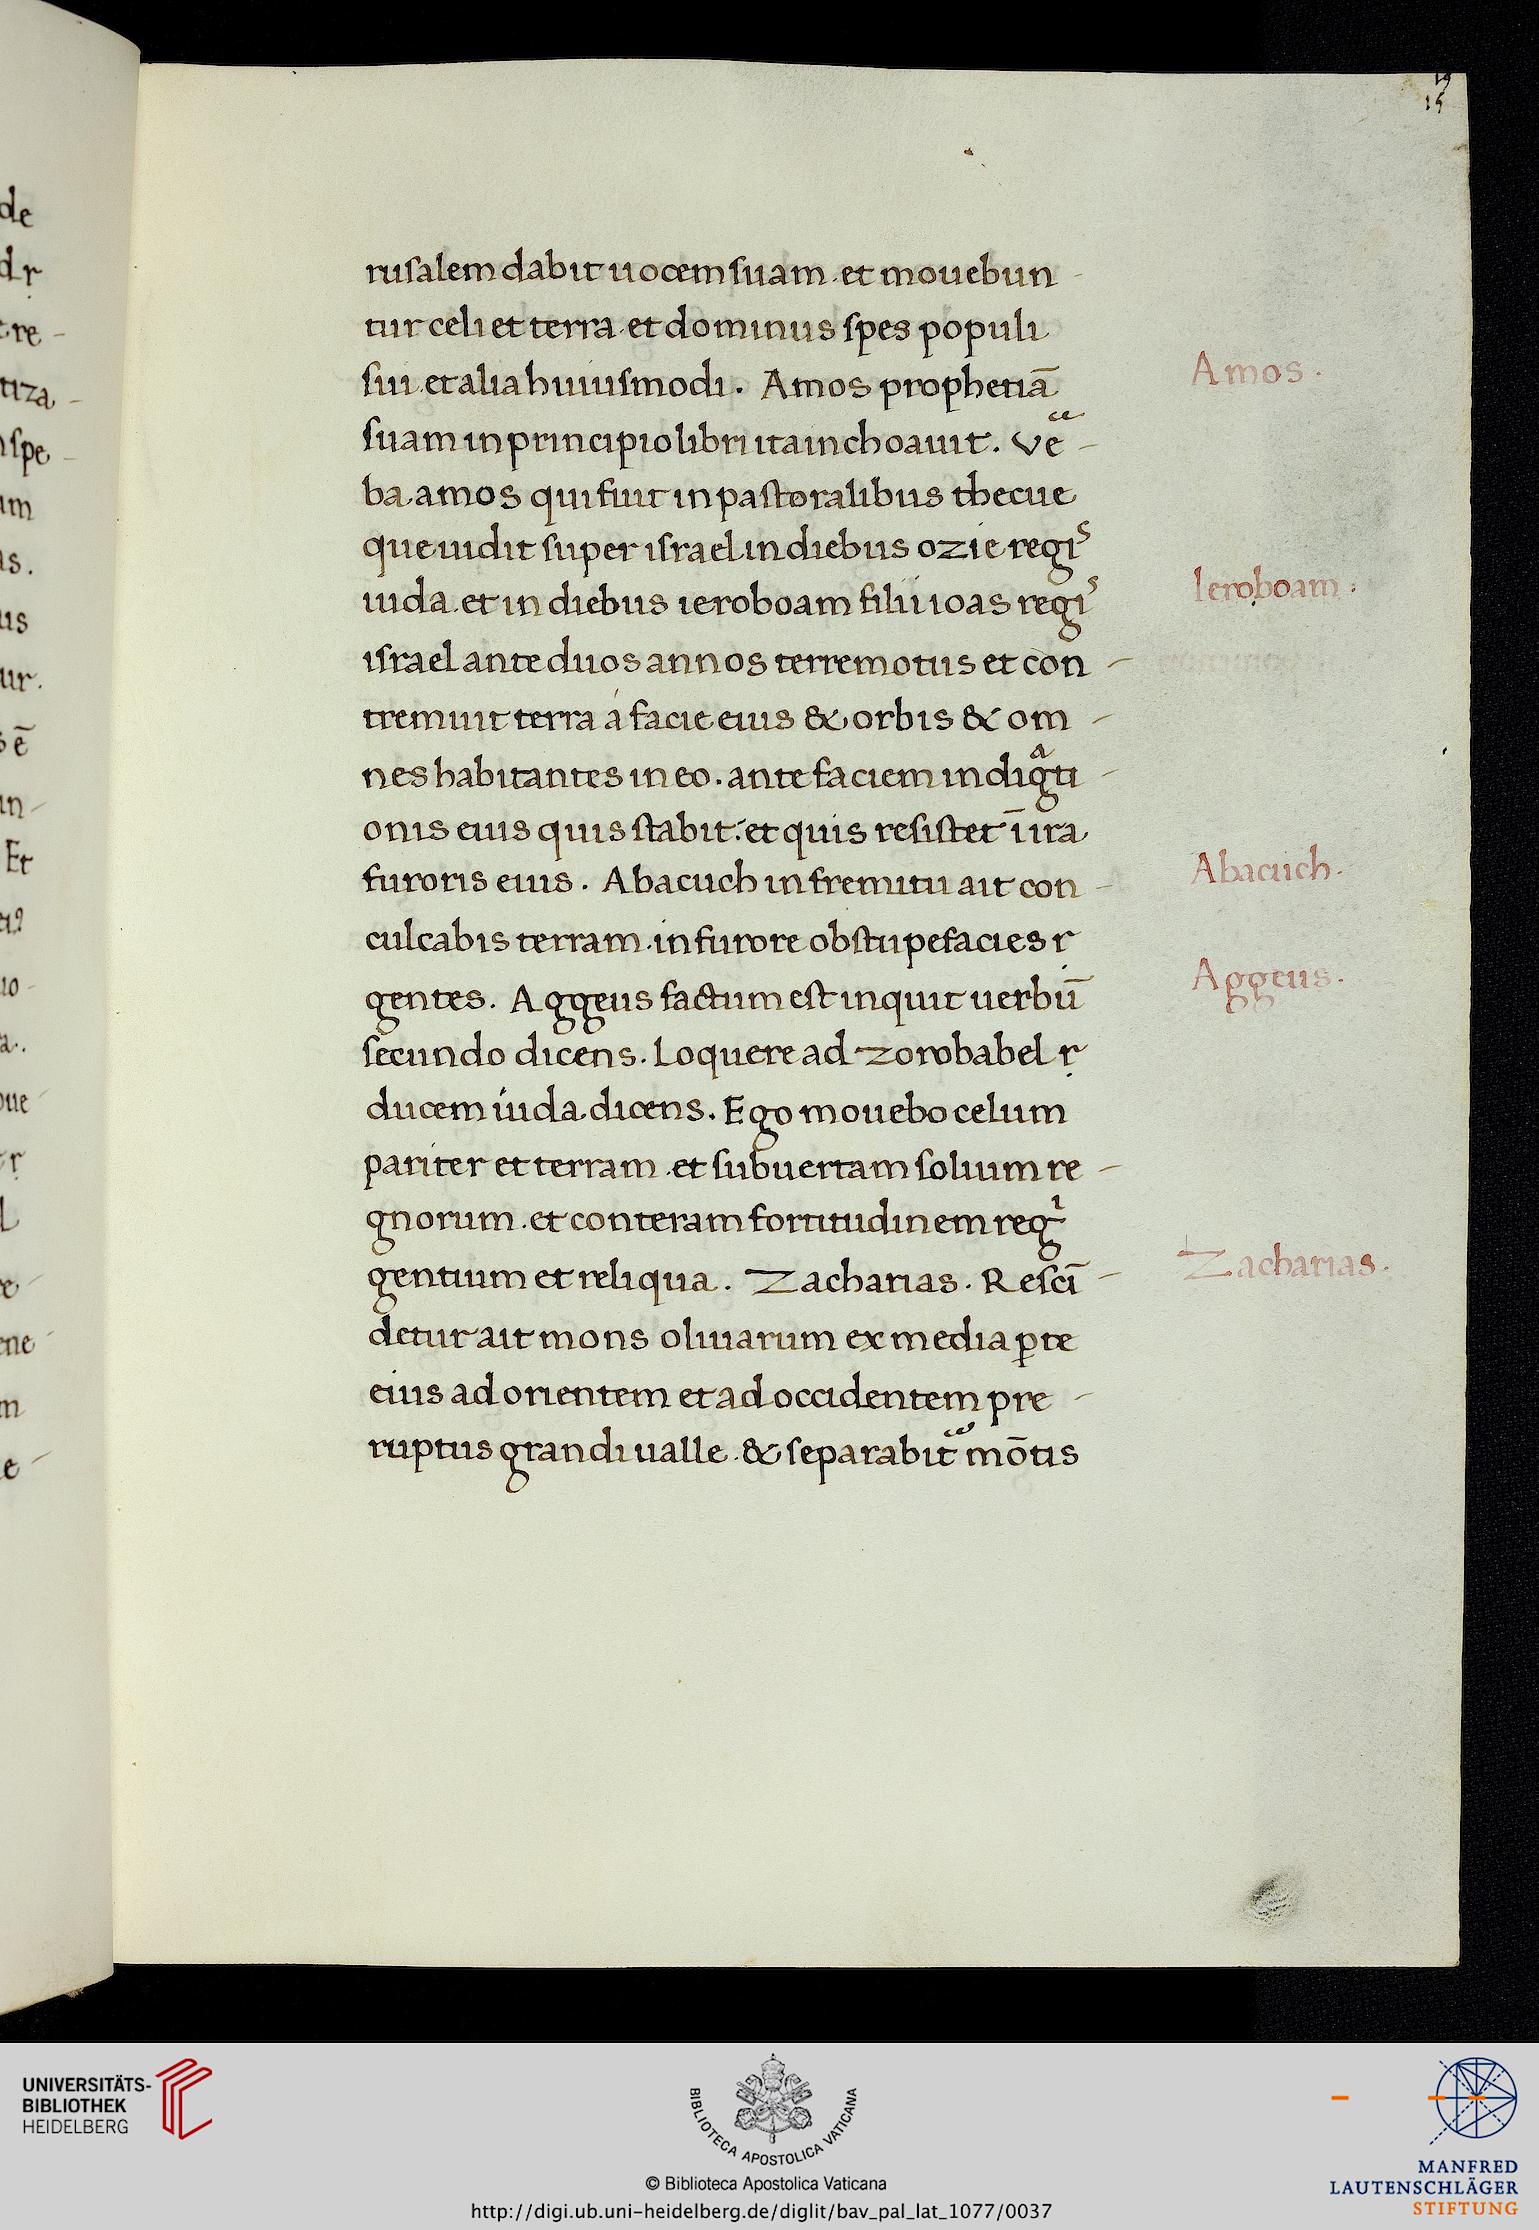 19
15
rusalem dabit uocem suam. et mouebun-
tur celi et terra. et dominus spes populi
sui. et alia huiusmodi. Amos prophetiā
suam in principio libri ita inchoauit. Ve-
ba amos qui fuit in pastoralibus thecue
que uidit super israel in diebus ozie regiˢ
iuda. et in diebus ieroboam filii ioas regiˢ
israel ante duos annos terremotus et con-
tremuit terra á facie eius & orbis & om-
nes habitantes in eo. ante faciem indigᵃti-
onis eius quis stabit: et quis resistet ī ira
furoris eius. Abacuch in fremitu ait con-
culcabis terram. in furore obstupefacies
gentes. Aggeus factum est inquit uerbū
secundo dicens. Loquere ad zorobabel
ducem iuda dicens. Ego mouebo celum
pariter et terram. et subuertam solium re-
gnorum. et conteram fortitudinem regⁱ
gentium et reliqua. Zacharias. Rescī-
detur ait mons oliuarum ex media ꝑte
eius ad orientem et ad occidentem pre-
ruptus grandi ualle. & separabit mōtis
Amos.
Ieroboam.
Abacuch.
Aggeus.
Zacharias.
de
re-
tiza-
spe-
um
as.
us
ur.
ē
in-
Et
ene
m
e
UNIVERSITÄTS-
BIBLIOTHEK
HEIDELBERG
BIBLIOTECA APOSTOLICA VATICANA
© Biblioteca Apostolica Vaticana
http://digi.ub.uni-heidelberg.de/diglit/bav_pal_lat_1077/0037
MANFRED
LAUTENSCHLÄGER
STIFTUNG